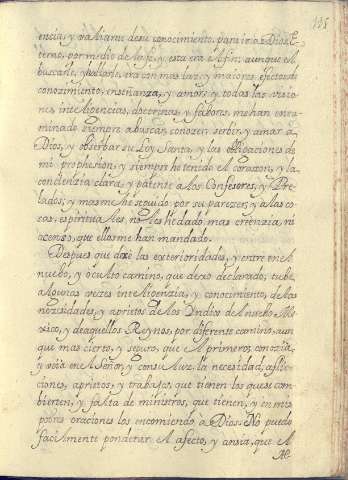 195
encia, y valiame de su conocimiento, para ir a Dios E-
terno, por medio de la fe, y esta era el fin: aunque el
buscarle, y hallarle, era con mas laze, y maiores efectos de
conozimiento, enseñanza, y amor; y todas las visio-
nes, inteligencias, doctrinas, y fabores, me han enca-
minado siempre a buscar, conozer, serbir, y amar à
Dios, y obserbar su Ley Santa, y las obligaciones de
mi prophesion; y siempre he tenido el corazon, y la
conzienzia clara, y patente a los Confesores, y Pre-
lados; y mas me he seguido por su parezer; y a las co-
sas, espirituales, no les he dado mas creenzia, ni
acenso, que el los me han mandado.
Despues que dexè las exterioridades, y entre en el
nuebo, y oculto camino, que dexo declarado, tube
algunas vezes inteligenzia, y conocimiento, de las
nezesidades, y aprietos de los Indios del nuebo Me-
xico, y de aquellos Reynos, por diferente camino, aun
que mas cierto, y seguro, que el primero; conozia,
y veia en el Señor, y con su luz, la necesidad, aflic-
ciones, aprietos, y trabajos, que tienen los que se con-
bierten, y falta de ministros, que tienen, y en mis
pobres oraciones los encomiendo à Dios. No puedo
facilmente ponderar el afecto, y ansia, que el